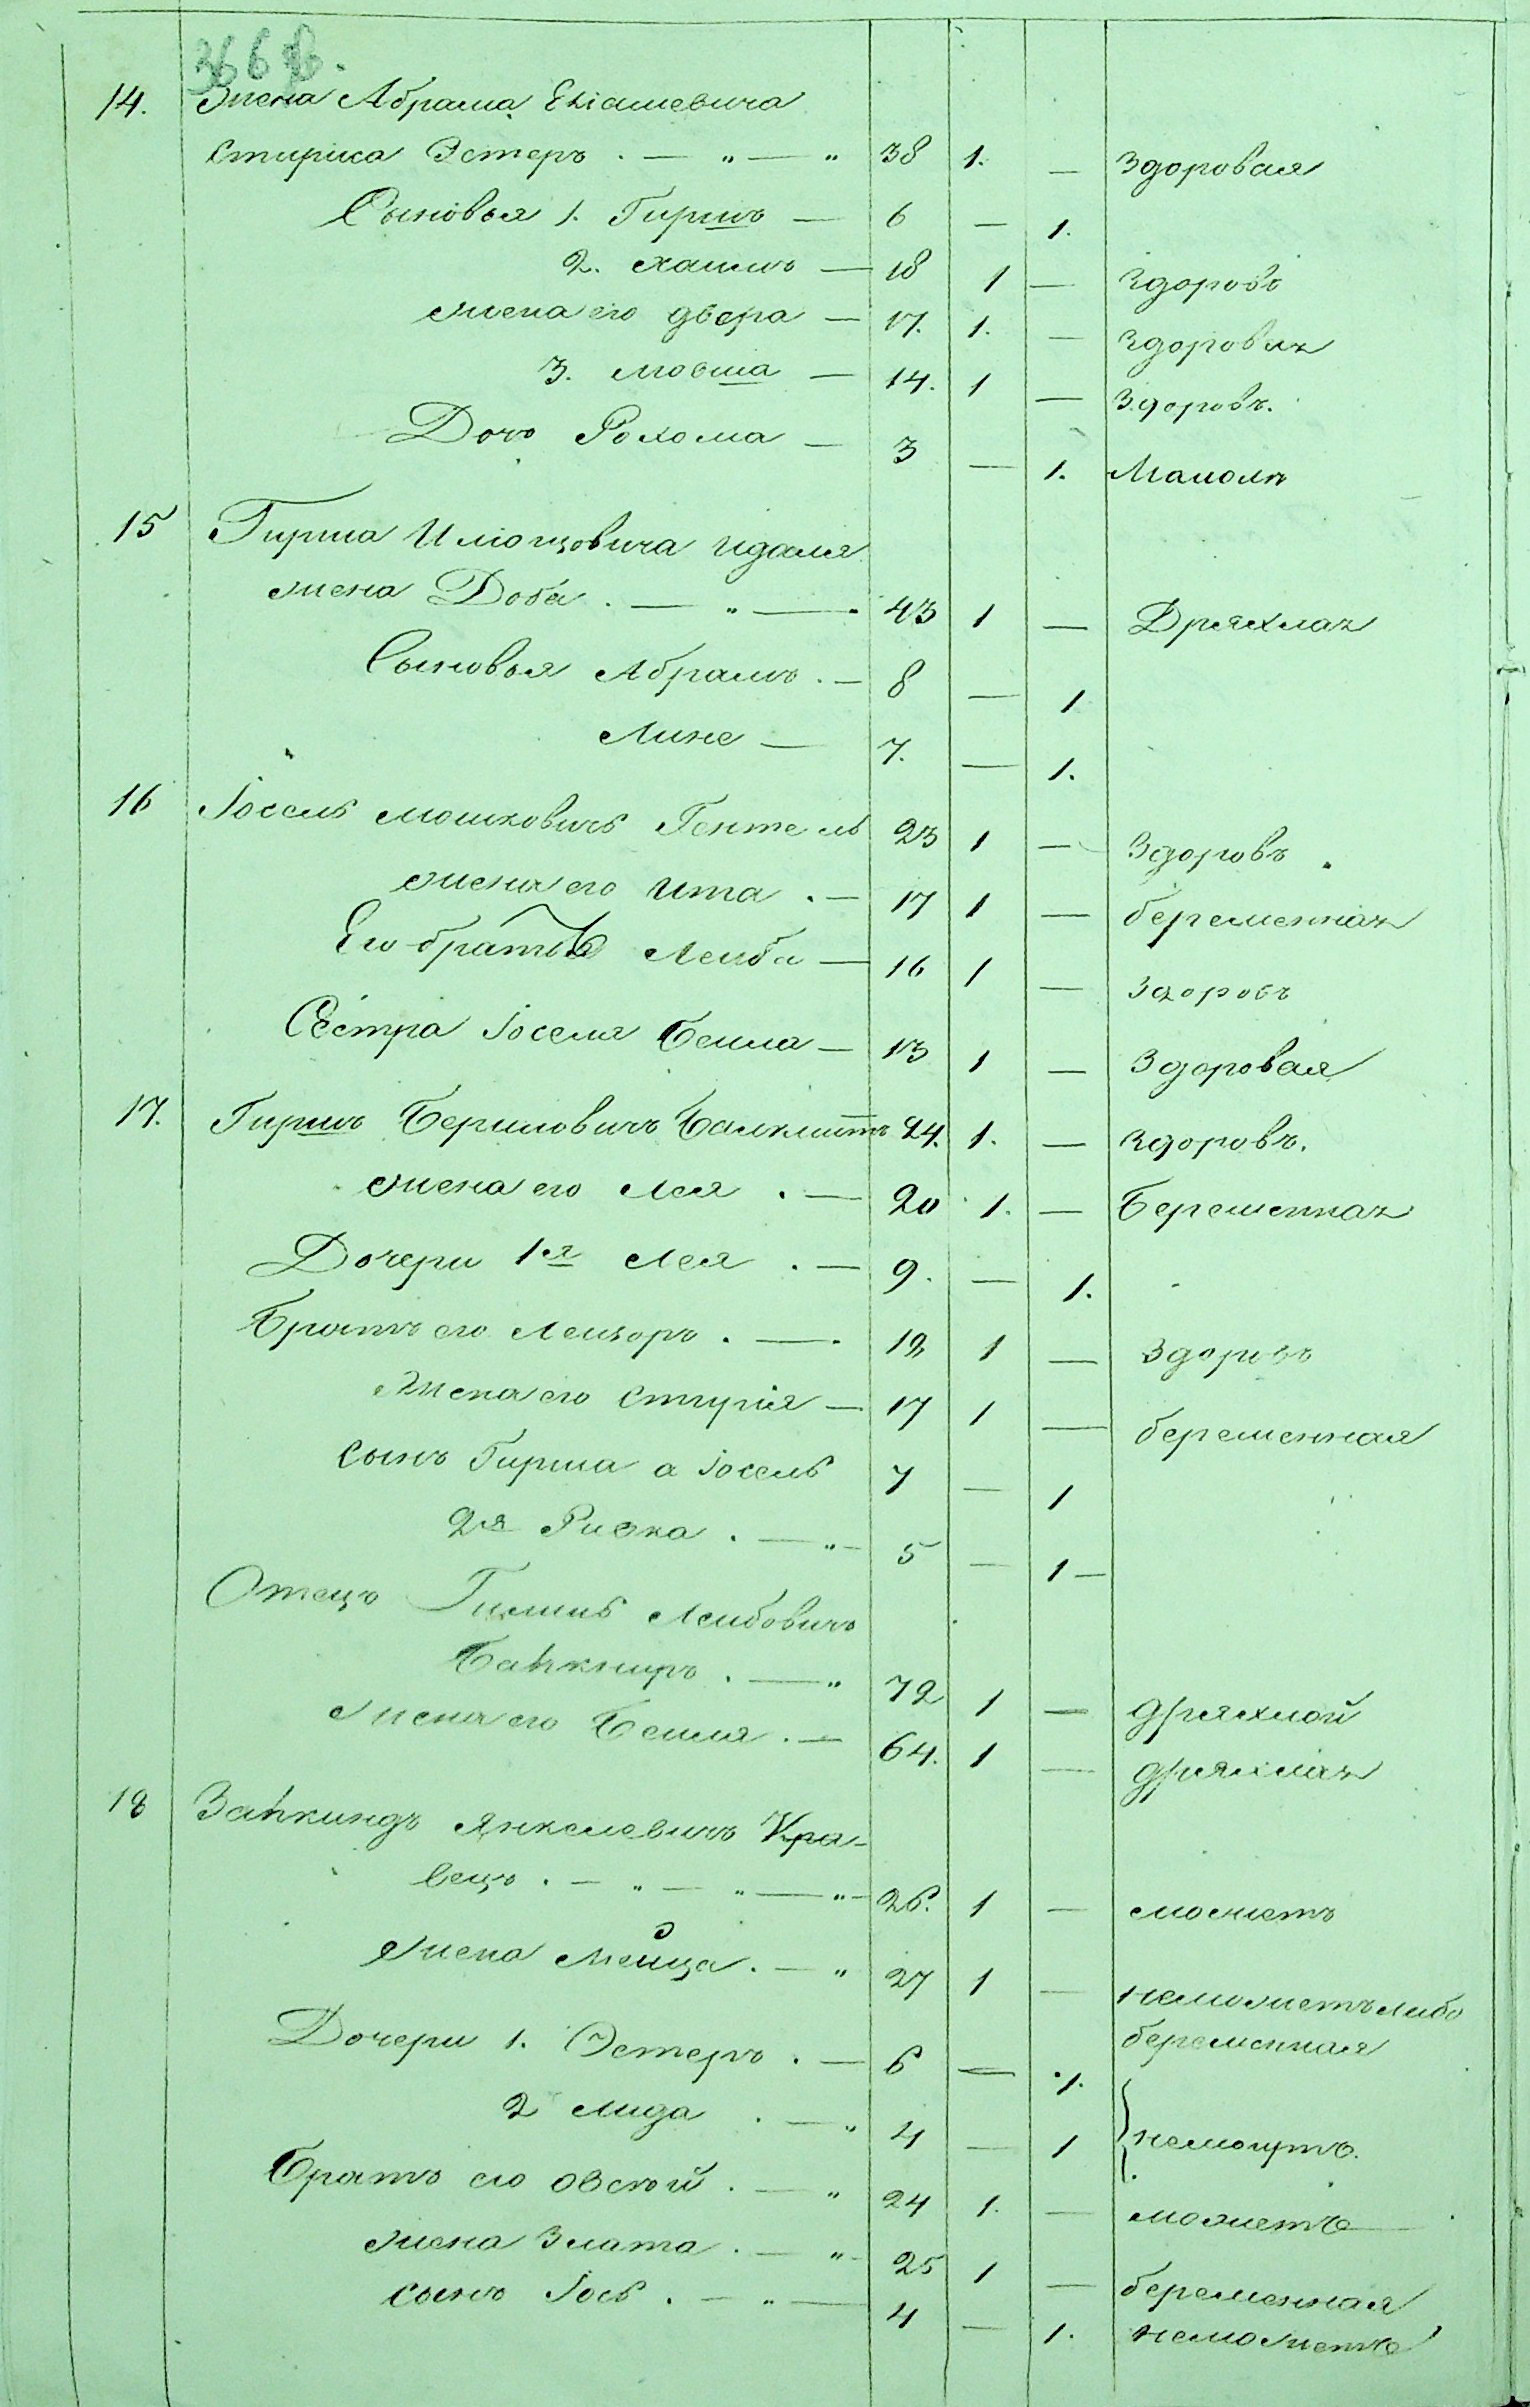 366
14. Жена Абрама Еліашевича
Стирика Эстеръ . — „ — „ 38 1. — Здоровая
Сыновья 1. Гиршъ — 6 — 1.
2. Хаимъ — 18 1 — Здоровъ
жена его Двера — 17. 1. — Здоровая
3. Мовша — 14. 1 — Здоровъ.
Дочь Рохома — 3 — 1.
15 Гирша Идаля
жена Доба . — „ — 43 1 — Дряхлая
Сыновья Абрамъ . — 8 — 1
Лине — 7. — 1.
16 Іосель Мошковичъ Гентель 23 1 — Здоровъ
жена его Ита . — 17 1 — беременная
Его братъ Лейба — 16 1 — Здоровъ
Сестра Іоселя Бейла — 13 1 — Здоровая
17. Гиршъ Берковичъ 24. 1. — Здоровъ.
жена его Лея . — 20 1. — Беременная
Дочери 1я Лея . — 9. — 1.
Братъ его Лейзоръ . — 19 1 — Здоровъ
Жена его — 17 1 — беременная
сынъ Гирша а Іосель 7 — 1
2я Ривка . — „ — 5 — 1 —
Отецъ Лейбовичъ
. — „ 72 1 — дряхлой
Жена его Бейля . — 64. 1 — дряхлая
18 Янкелевичъ Кра-
вецъ . — „ — „ — „ — 26. 1 — можетъ
Жена . — „ 27 1 — неможетъ либо
беременная
Дочери 1. Эстеръ . — 6 — 1.
2 Лида . — „ 4 — 1 немогутъ.
Братъ его Овсей . — „ 24 1. — можетъ
жена Злата . — „ — 25 1 — беременная
сынъ Іось . — „ — 4 — 1. неможетъ